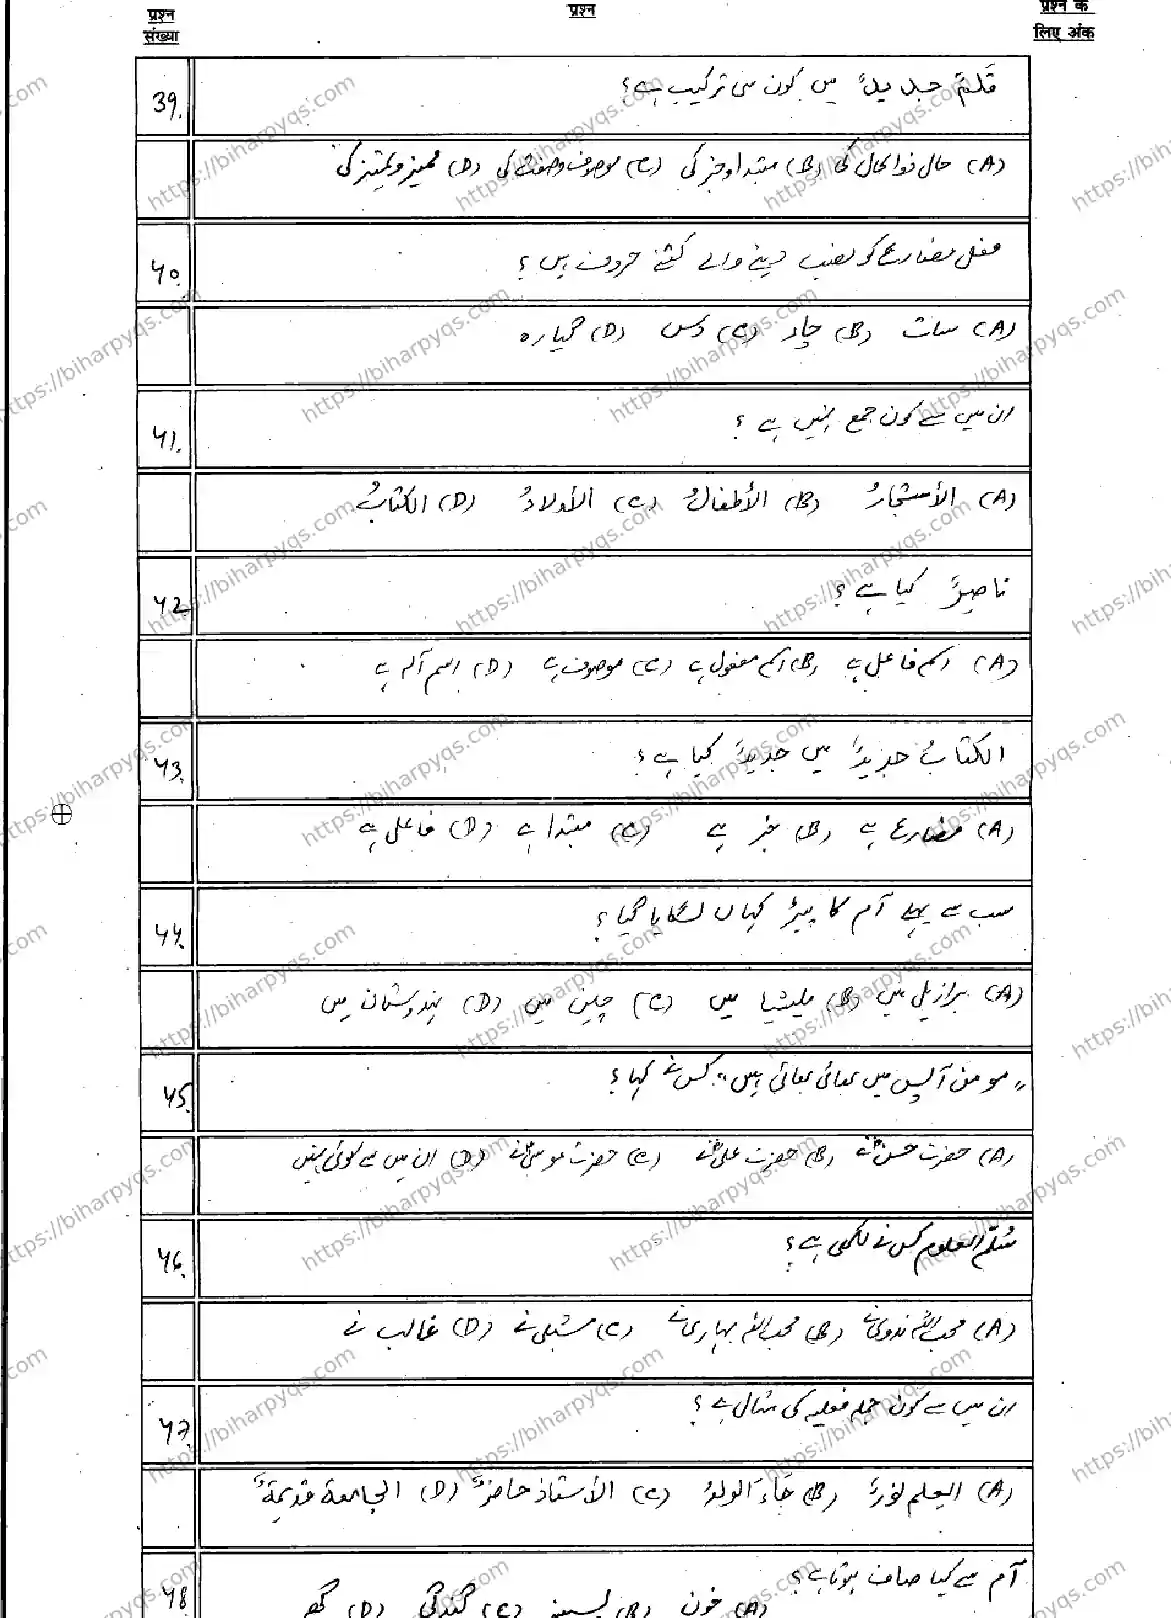 प्रश्न संख्या
प्रश्न
प्रश्न के लिए अंक
39. قَلَمٌ جديدٌ میں کون سی ترکیب ہے؟
(A) حال ذوالحال کی (B) مبتدا وخبر کی (C) موصوف وصفت کی (D) ممیز و تمیز کی
40. فعل مضارع کو نصب دینے والے کتنے حروف ہیں؟
(A) سات (B) چار (C) دس (D) گیارہ
41. ان میں سے کون جمع نہیں ہے؟
(A) الأشجارُ (B) الأطفالُ (C) الأولادُ (D) الکتابُ
42. ناصرٌ کیا ہے؟
(A) اسم فاعل ہے (B) اسم مفعول ہے (C) موصوف ہے (D) اسم آلہ ہے
43. الکتابُ جدیدٌ میں جدیدٌ کیا ہے؟
(A) مضارع ہے (B) خبر ہے (C) مبتدا ہے (D) فاعل ہے
44. سب سے پہلے آم کا پیڑ کہاں لگایا گیا؟
(A) برازیل میں (B) ملیشیا میں (C) چین میں (D) ہندوستان میں
45. "مومن آپس میں بھائی بھائی ہیں"۔ کس نے کہا؟
(A) حضرت حسنؓ نے (B) حضرت علیؓ نے (C) حضرت موسیٰؑ نے (D) ان میں سے کوئی نہیں
46. سُلّم العلوم کس نے لکھی ہے؟
(A) محب اللہ ندوی نے (B) محب اللہ بہاری نے (C) شبلی نے (D) غالب نے
47. ان میں سے کون جملہ فعلیہ کی مثال ہے؟
(A) العلم نورٌ (B) جَاءَ الولدُ (C) الأستاذ حاضرٌ (D) الجامعة قديمةٌ
48. آم سے کیا صاف ہوتا ہے؟
(A) خون (B) پسینہ (C) گندگی (D)
https://biharpyqs.com